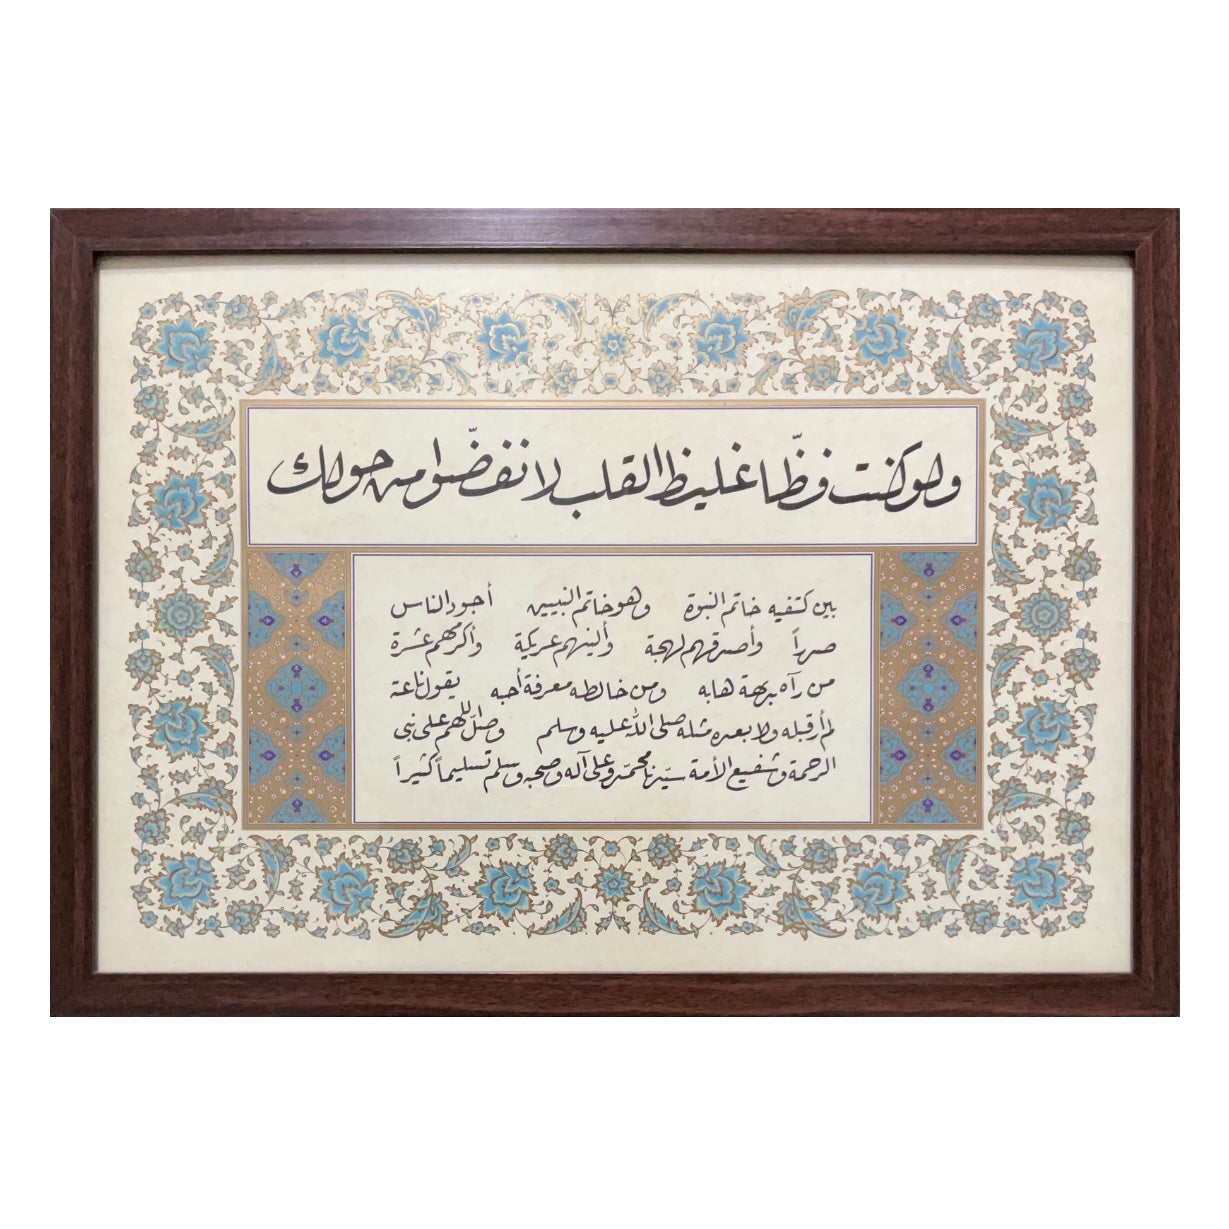 ولو كنت فظّا غليظ القلب لانفضّوا من حولك
بين كتفيه خاتم النبوة وهو خاتم النبيين أجود الناس
صدراً وأصدقهم لهجة وألينهم عريكة وأكرمهم عشرة
من رآه بديهة هابه ومن خالطه معرفة أحبه يقول ناعته
لم أر قبله ولا بعده مثله صلى الله عليه وسلم وصلّ اللهم على نبي
الرحمة وشفيع الأمة سيّدنا محمّد وعلى آله وصحبه وسلم تسليماً كثيراً